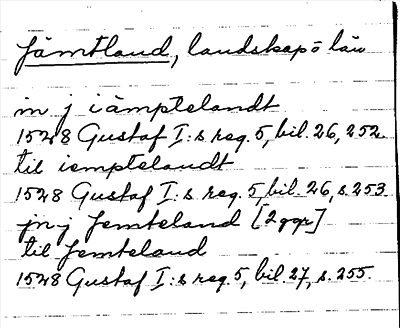 Jämtland, landskap o län
in j iämptelandt
1528 Gustaf I:s reg. 5, bil. 26, 252
til iemptelandt
1528 Gustaf I:s reg. 5, bil. 26, s. 253
jn j Jemteland [2 ggr]
til Jemteland
1528 Gustaf I:s reg. 5, bil. 27, s. 255.